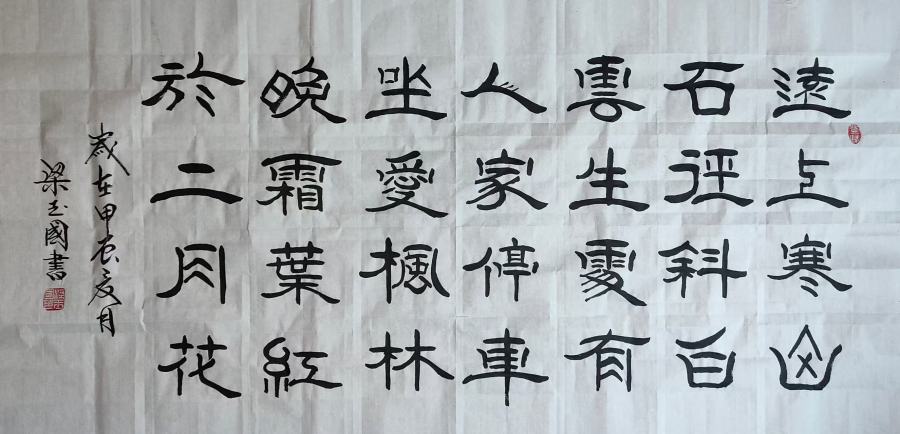 遠上寒山
石徑斜白
雲生處有
人家停車
坐愛楓林
晚霜葉紅
於二月花
歲在甲辰夏月
梁玉國書